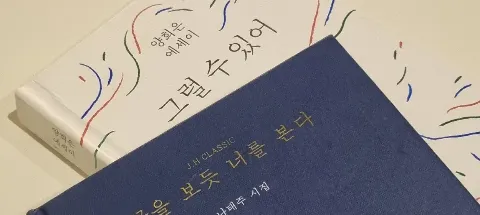 양희은
에세이
그럴 수 있어
양희은
에세이
J.H CLASSIC
보듯 너를 본다
나태주 시집